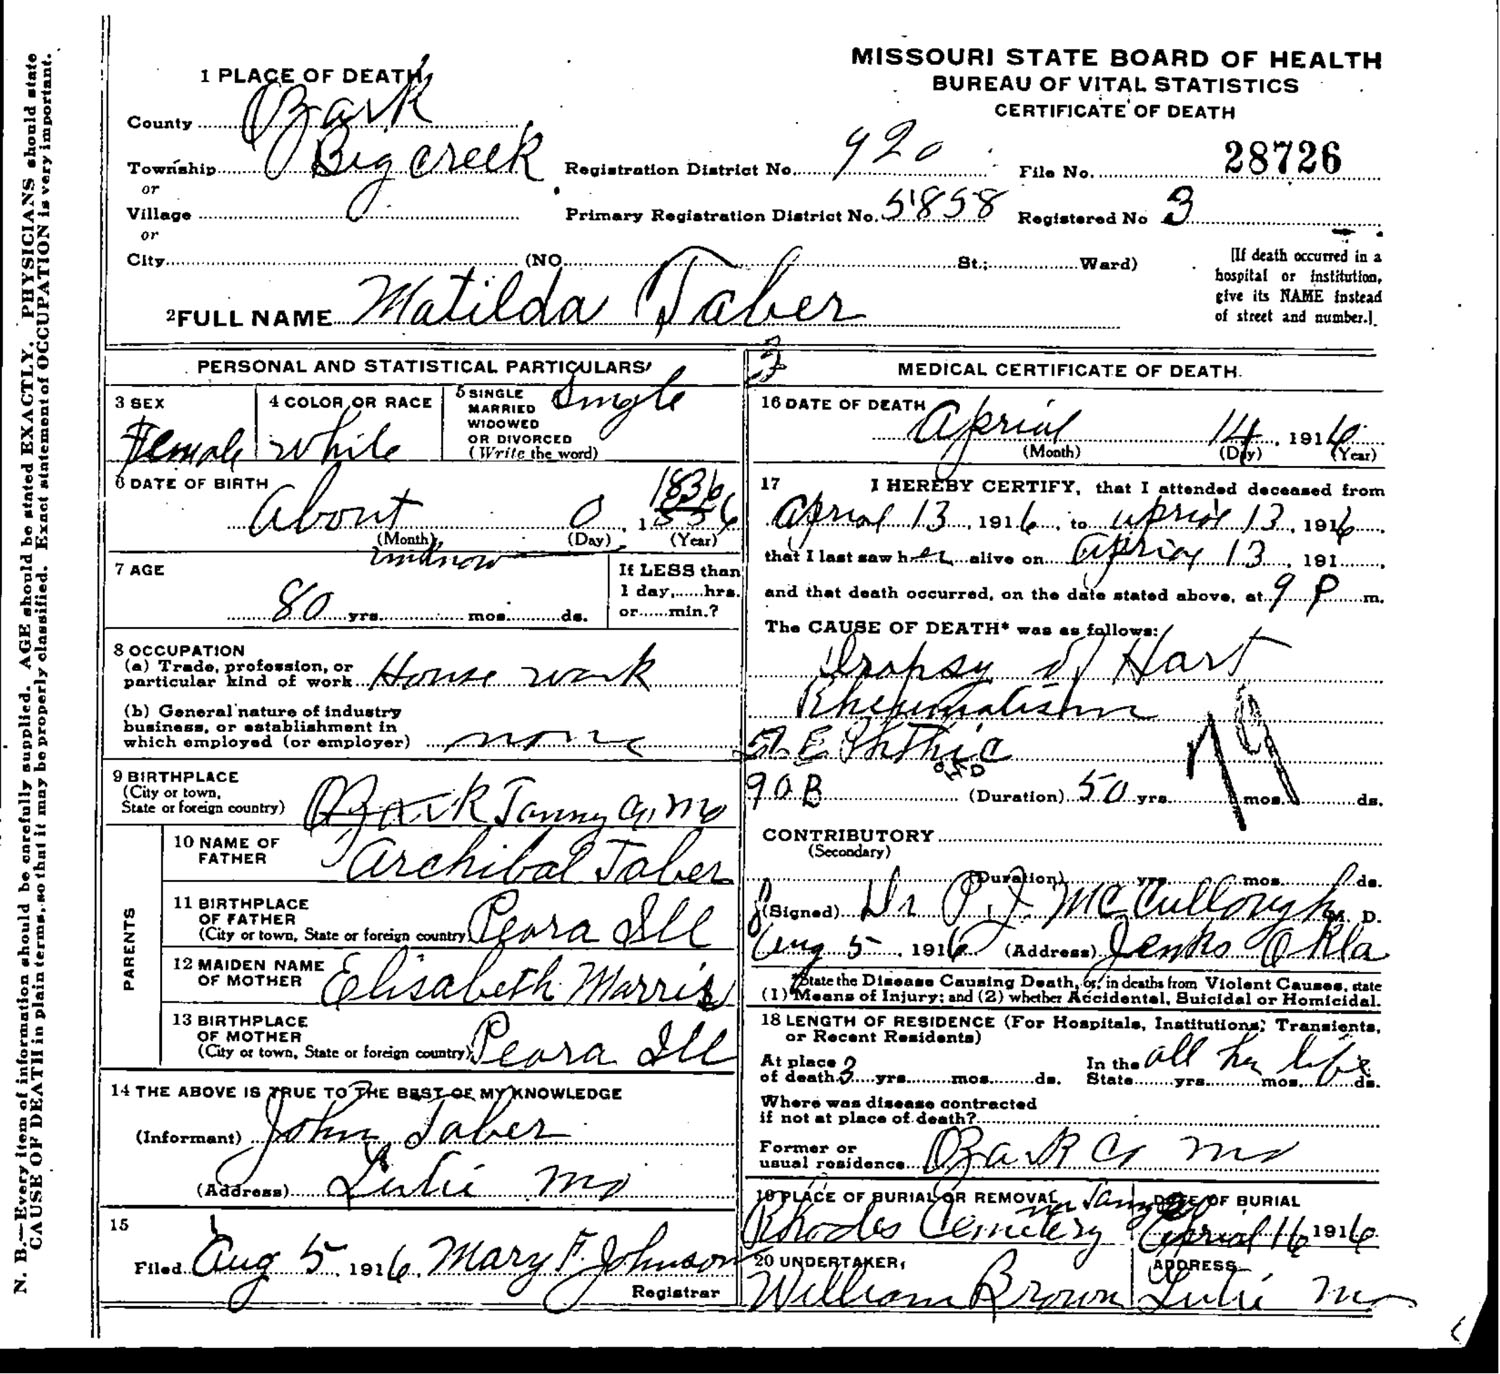 MISSOURI STATE BOARD OF HEALTH
BUREAU OF VITAL STATISTICS
CERTIFICATE OF DEATH
1 PLACE OF DEATH
County Ozark
Township Big creek Registration District No. 920 File No. 28726
or
Village Primary Registration District No. 5858 Registered No 3
or
City (NO. St.; Ward)
[If death occurred in a hospital or institution, give its NAME instead of street and number.]
2 FULL NAME Matilda Taber
PERSONAL AND STATISTICAL PARTICULARS
3 SEX Female
4 COLOR OR RACE white
5 SINGLE MARRIED WIDOWED OR DIVORCED (Write the word) Single
6 DATE OF BIRTH About 0 1836
(Month) (Day) (Year)
unknow
7 AGE 80 yrs. mos. ds.
If LESS than 1 day, hrs. or min.?
8 OCCUPATION
(a) Trade, profession, or particular kind of work House work
(b) General nature of industry business, or establishment in which employed (or employer) none
9 BIRTHPLACE
(City or town, State or foreign country) Tanny Co, Mo
PARENTS
10 NAME OF FATHER Archibal Taber
11 BIRTHPLACE OF FATHER
(City or town, State or foreign country) Peara Ill
12 MAIDEN NAME OF MOTHER Elisabeth Marris
13 BIRTHPLACE OF MOTHER
(City or town, State or foreign country) Peara Ill
14 THE ABOVE IS TRUE TO THE BEST OF MY KNOWLEDGE
(Informant) John Taber
(Address) Lutie Mo
15
Filed Aug 5, 1916, Mary F. Johnson
Registrar
3
MEDICAL CERTIFICATE OF DEATH.
16 DATE OF DEATH Aprial 14, 1916
(Month) (Day) (Year)
17 I HEREBY CERTIFY, that I attended deceased from
aprial 13, 1916, to aprial 13, 1916
that I last saw her alive on aprial 13, 191
and that death occurred, on the date stated above, at 9 P m.
The CAUSE OF DEATH* was as follows:
Dropsy of Hart
Rheumatism
79
90B (Duration) 50 yrs. mos. ds.
CONTRIBUTORY
(Secondary)
(Duration) yrs. mos. ds.
(Signed) Dr P. J. McCullough M. D.
Aug 5, 1916 (Address) Jenks Okla
*State the Disease Causing Death, or, in deaths from Violent Causes, state
(1) Means of Injury; and (2) whether Accidental, Suicidal or Homicidal.
18 LENGTH OF RESIDENCE (For Hospitals, Institutions, Transients, or Recent Residents)
At place of death 3 yrs. mos. ds. In the State all her life yrs. mos. ds.
Where was disease contracted if not at place of death?
Former or usual residence Ozark Co Mo
19 PLACE OF BURIAL OR REMOVAL Rhodes Cemetery
DATE OF BURIAL Aprial 16 1916
20 UNDERTAKER, William Brown
ADDRESS Lutie Mo
N. B.—Every item of information should be carefully supplied. AGE should be stated EXACTLY. PHYSICIANS should state
CAUSE OF DEATH in plain terms, so that it may be properly classified. Exact statement of OCCUPATION is very important.